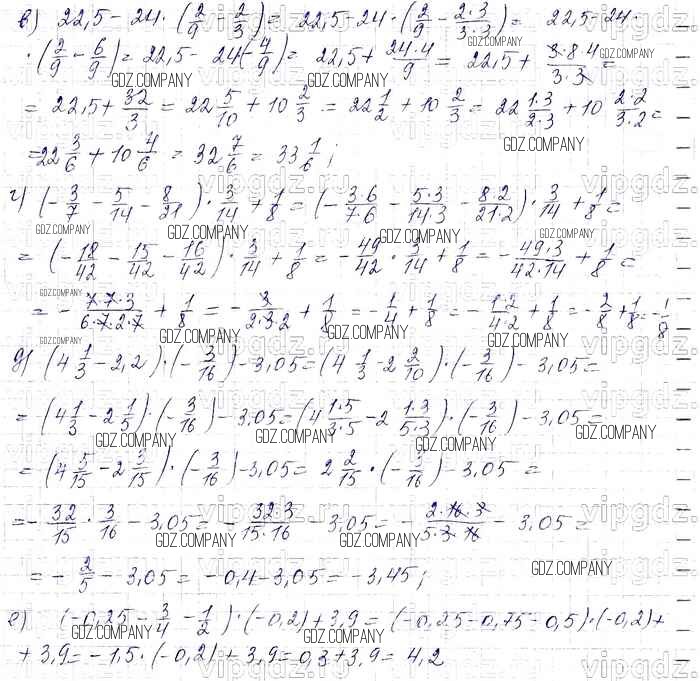 в) 22,5 - 24 · (2/9 - 2/3) = 22,5 - 24 · (2/9 - 2·3/3·3) = 22,5 - 24 ·
· (2/9 - 6/9) = 22,5 - 24(-4/9) = 22,5 + 24·4/9 = 22,5 + 3·8·4/3·3 =
= 22,5 + 32/3 = 22 5/10 + 10 2/3 = 22 1/2 + 10 2/3 = 22 1·3/2·3 + 10 2·2/3·2 =
= 22 3/6 + 10 4/6 = 32 7/6 = 33 1/6 ;
г) (- 3/7 - 5/14 - 8/21) · 3/14 + 1/8 = (- 3·6/7·6 - 5·3/14·3 - 8·2/21·2) · 3/14 + 1/8 =
= (- 18/42 - 15/42 - 16/42) · 3/14 + 1/8 = - 49/42 · 3/14 + 1/8 = - 49·3/42·14 + 1/8 =
= - 7·7·3/6·7·2·7 + 1/8 = - 3/2·3·2 + 1/8 = - 1/4 + 1/8 = - 1·2/4·2 + 1/8 = - 2/8 + 1/8 = - 1/8
д) (4 1/3 - 2,2) · (- 3/16) - 3,05 = (4 1/3 - 2 2/10) · (- 3/16) - 3,05 =
= (4 1/3 - 2 1/5) · (- 3/16) - 3,05 = (4 1·5/3·5 - 2 1·3/5·3) · (- 3/16) - 3,05 =
= (4 5/15 - 2 3/15) · (- 3/16) - 3,05 = 2 2/15 · (- 3/16) - 3,05 =
= - 32/15 · 3/16 - 3,05 = - 32·3/15·16 - 3,05 = - 2·16·3/5·3·16 - 3,05 =
= - 2/5 - 3,05 = -0,4 - 3,05 = -3,45 ;
е) (-0,25 - 3/4 - 1/2) · (-0,2) + 3,9 = (-0,25 - 0,75 - 0,5) · (-0,2) +
+ 3,9 = -1,5 · (-0,2) + 3,9 = 0,3 + 3,9 = 4,2